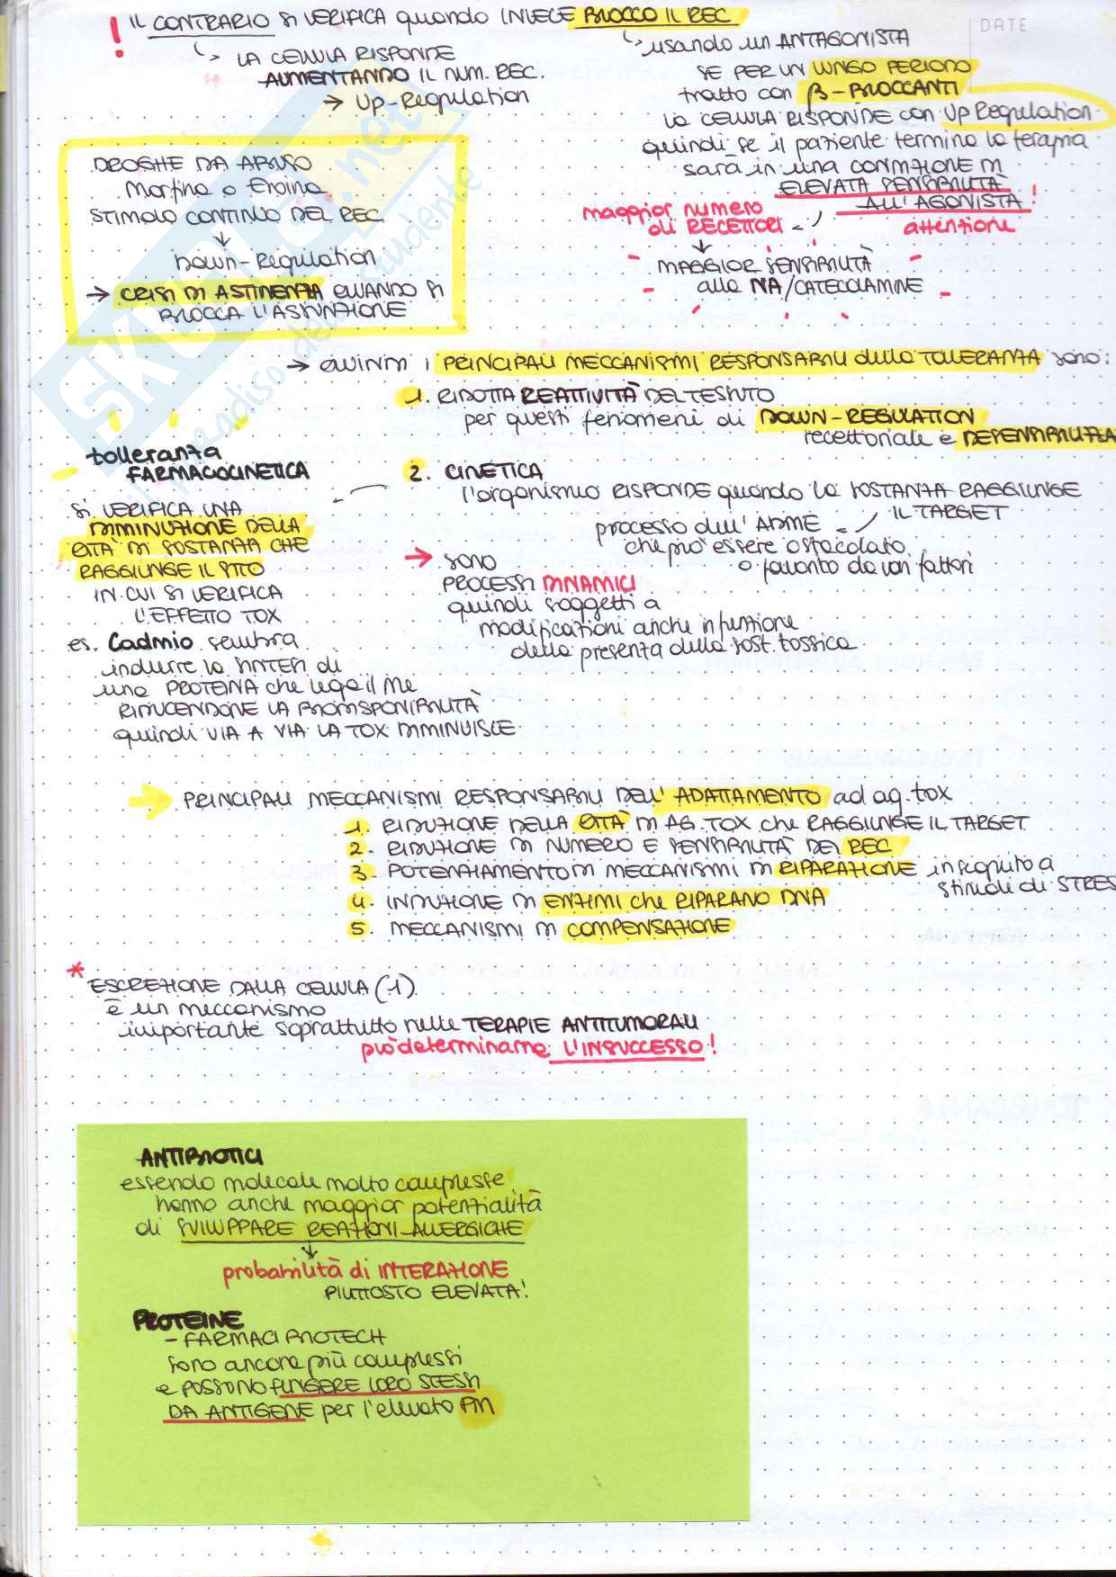 ! IL CONTRARIO SI VERIFICA quando INVECE BLOCCO IL REC
DATE
↳ LA CELLULA RISPONDE
AUMENTANDO IL NUM. REC.
→ Up-Regulation
↳ usando un ANTAGONISTA
SE PER UN LUNGO PERIODO
tratto con β-BLOCCANTI
la CELLULA RISPONDE con Up Regulation
quindi se il paziente termina la terapia
sarà in una CONDIZIONE DI
ELEVATA SENSIBILITÀ
ALL'AGONISTA!
attenzione
maggior numero
di RECETTORI
↓
MAGGIOR SENSIBILITÀ
alla NA/CATECOLAMINE
DROGHE DA ABUSO
Morfina o Eroina
STIMOLO CONTINUO DEL REC
↓
Down-Regulation
→ CRISI DI ASTINENZA QUANDO SI
BLOCCA L'ASSUNZIONE
→ QUINDI i PRINCIPALI MECCANISMI RESPONSABILI della TOLLERANZA sono:
1. RIDOTTA REATTIVITÀ DEL TESSUTO
per questi fenomeni di DOWN-REGULATION
recettoriale e DESENSIBILIZZA
2. CINETICA
l'organismo RISPONDE quando la SOSTANZA RAGGIUNGE
IL TARGET
processo dell'ADME
che può essere ostacolato
o favorito da vari fattori
→ SONO
PROCESSI DINAMICI
quindi soggetti a
modificazioni anche in funzione
della presenza della sost. tossica
tolleranza
FARMACOCINETICA
SI VERIFICA UNA
DIMINUZIONE DELLA
QTTÀ DI SOSTANZA CHE
RAGGIUNGE IL SITO
IN CUI SI VERIFICA
L'EFFETTO TOX
es. Cadmio sembra
indurre la SINTESI di
una PROTEINA che lega il Me
RIDUCENDONE LA BIODISPONIBILITÀ
quindi VIA A VIA LA TOX DIMINUISCE
→ PRINCIPALI MECCANISMI RESPONSABILI DELL'ADATTAMENTO ad ag. tox
1. RIDUZIONE DELLA QTTÀ DI AG. TOX che RAGGIUNGE IL TARGET
2. RIDUZIONE DI NUMERO E SENSIBILITÀ DEI REC
3. POTENZIAMENTO DI MECCANISMI DI RIPARAZIONE in seguito a
stimoli di STRES
4. INDUZIONE DI ENZIMI che RIPARANO DNA
5. MECCANISMI DI COMPENSAZIONE
* ESCREZIONE DALLA CELLULA (1)
è un meccanismo
importante soprattutto nelle TERAPIE ANTITUMORALI
può determinarne L'INSUCCESSO!
ANTIBIOTICI
essendo molecole molto complesse
hanno anche maggior potenzialità
di SVILUPPARE REAZIONI ALLERGICHE
↓
probabilità di INTERAZIONE
PIUTTOSTO ELEVATA!
PROTEINE
- FARMACI BIOTECH
sono ancora più complessi
e POSSONO FUNGERE LORO STESSI
DA ANTIGENE per l'elevato PM